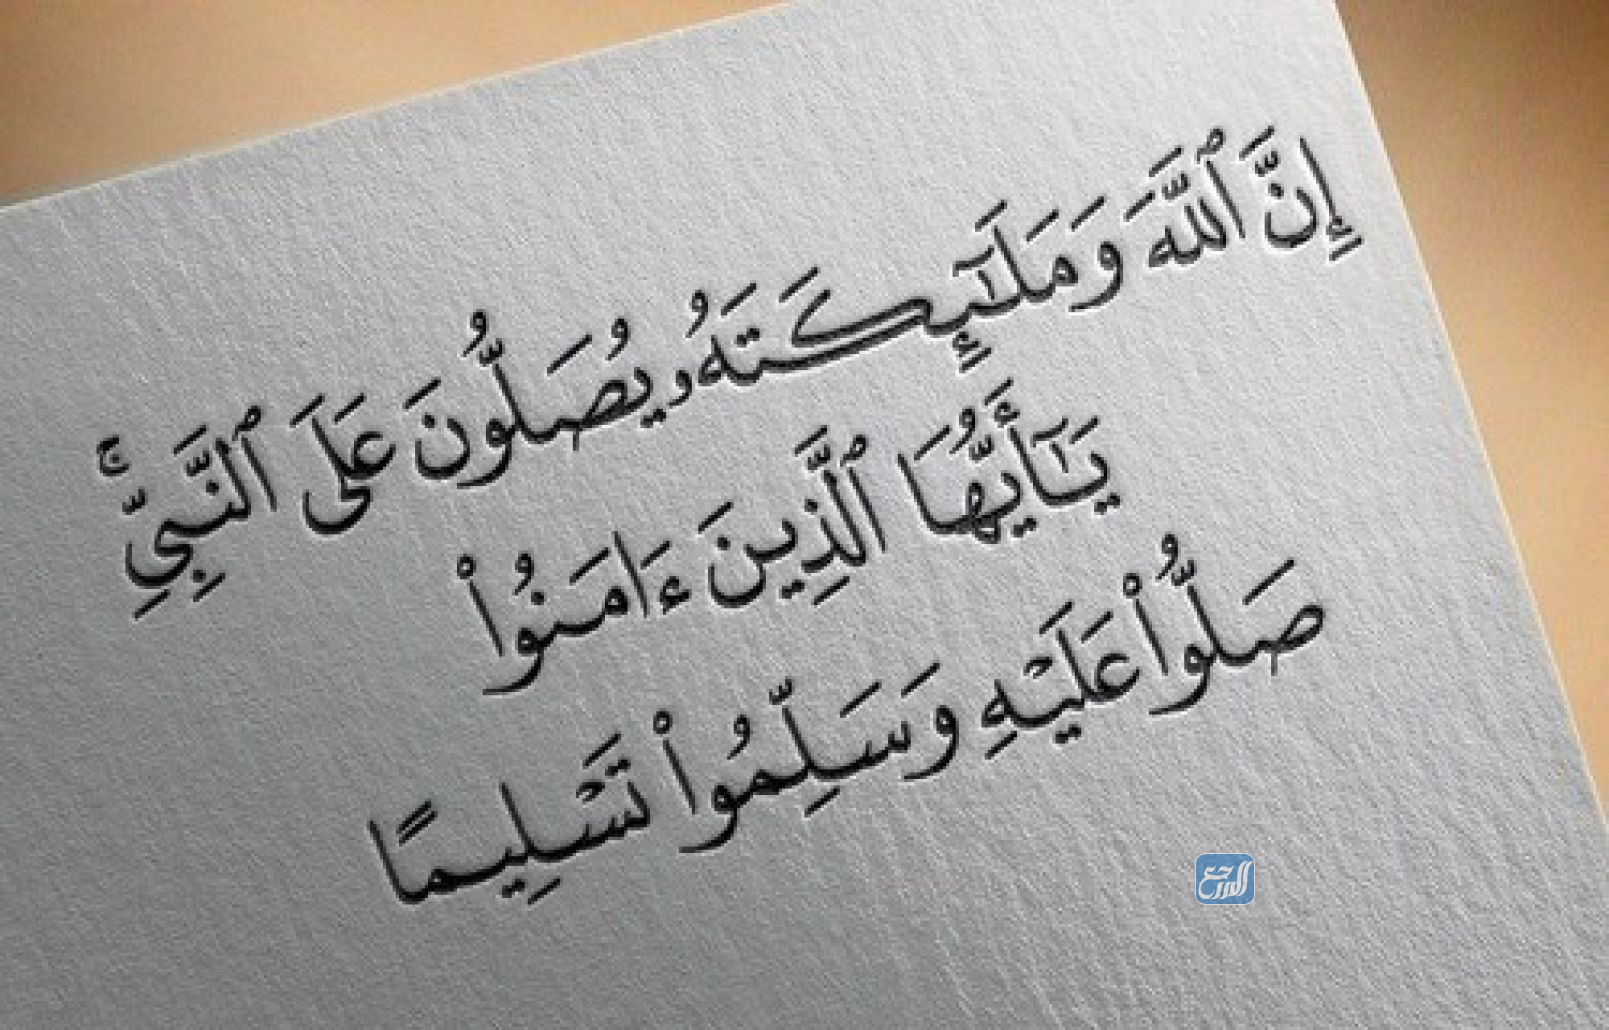 إِنَّ ٱللَّهَ وَمَلَـٰٓئِكَتَهُۥ يُصَلُّونَ عَلَى ٱلنَّبِىِّ ۚ
يَـٰٓأَيُّهَا ٱلَّذِينَ ءَامَنُوا۟
صَلُّوا۟ عَلَيْهِ وَسَلِّمُوا۟ تَسْلِيمًا
المرجع